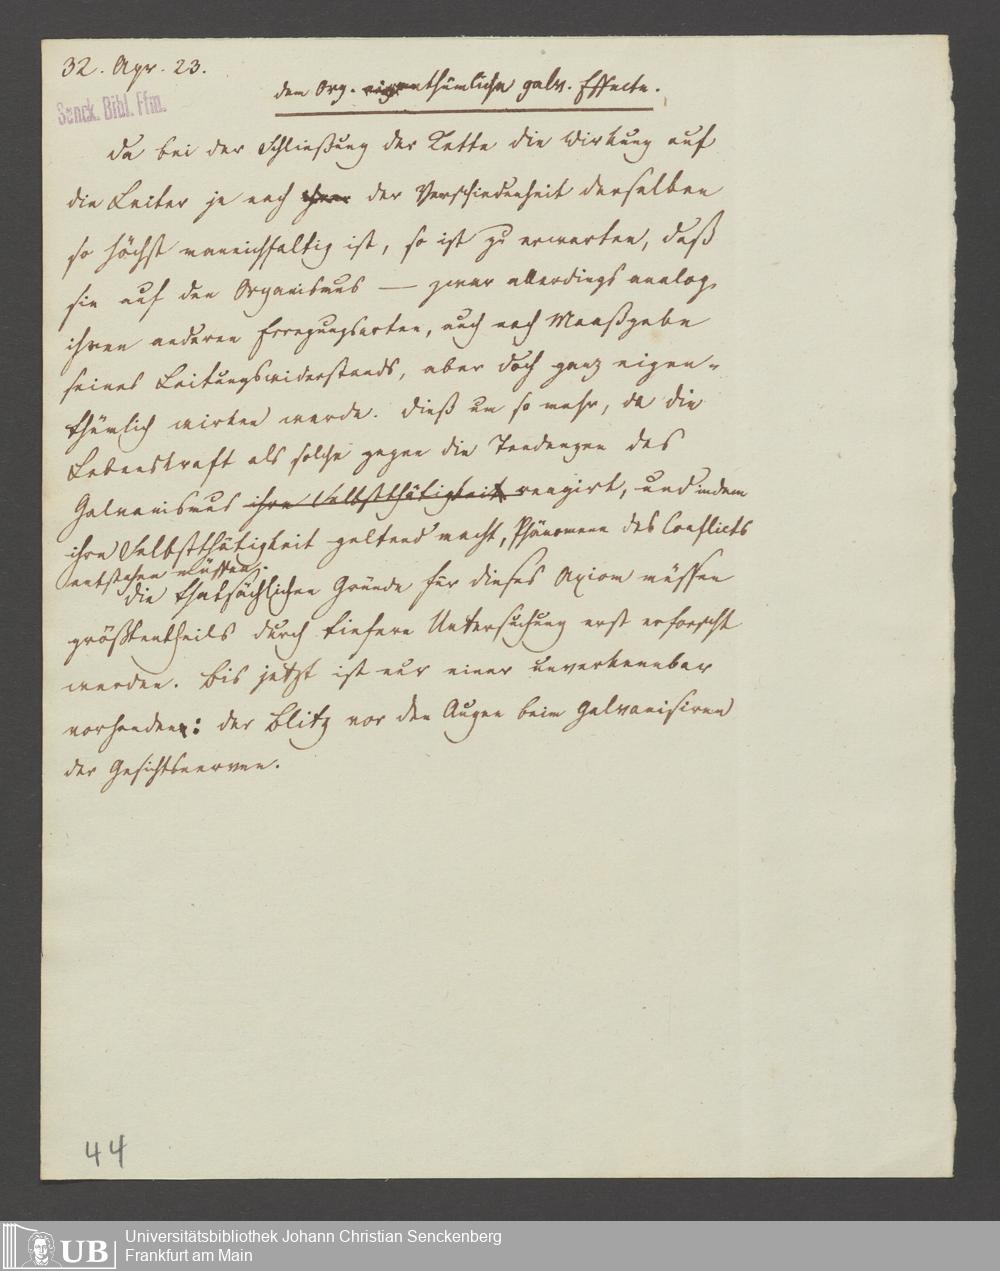 32. Apr. 23.
Senck. Bibl. Ffm.
dem Org. eigenthümliche galv. Effecte.
Da bei der Schließung der Kette die Wirkung auf
die Leiter je nach der Verschiedenheit derselben
so höchst mannichfaltig ist, so ist zu erwarten, daß
sie auf den Organismus — zwar allerdings analog
ihren anderen Erregungsarten, auch nach Maaßgabe
seines Leitungswiderstands, aber doch ganz eigen-
thümlich wirken werde. Dieß um so mehr, da die
Lebenskraft als solche gegen die Tendenzen des
Galvanismus ihre Selbstthätigkeit reagirt, und indem
ihre Selbstthätigkeit geltend macht, Phänomene des Conflicts
entstehen müssen.
Die thatsächlichen Gründe für dieses Axiom müssen
größtentheils durch tiefere Untersuchung erst erforscht
werden. Bis jetzt ist nur einer unverkennbar
vorhanden: der Blitz vor den Augen beim Galvanisiren
der Gesichtsnerven.
44
UB
Universitätsbibliothek Johann Christian Senckenberg
Frankfurt am Main